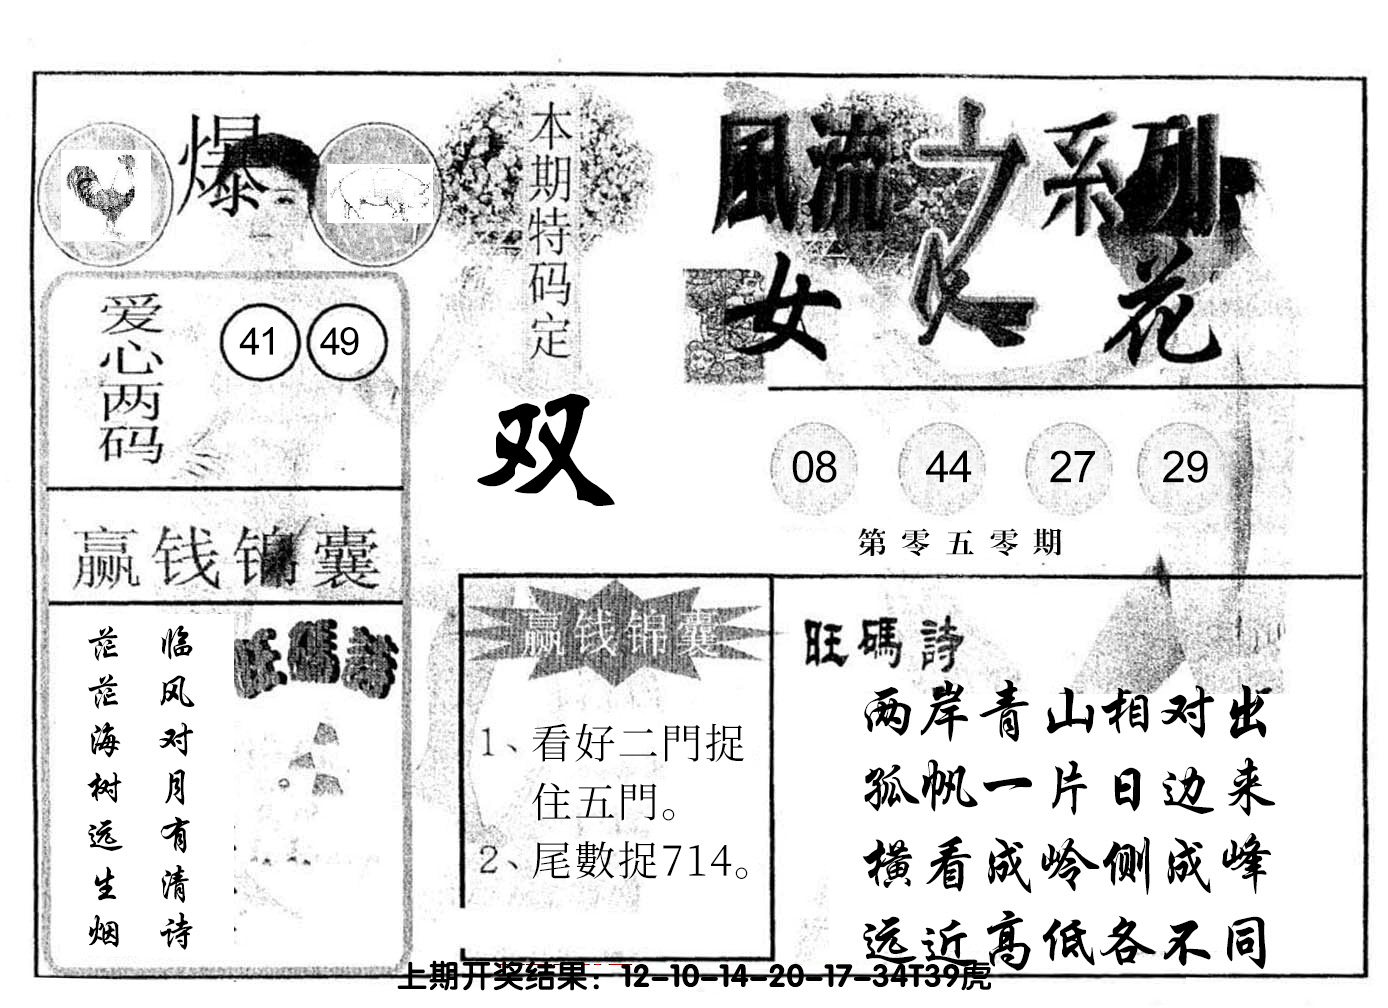 爆
本期特码定
双
風流之系列
女人花
爱心两码
41 49
08 44 27 29
第零五零期
赢钱锦囊
临风对月有清诗
茫茫海树远生烟
旺碼詩
赢钱锦囊
1、看好二門捉
住五門。
2、尾數捉714。
旺碼詩
两岸青山相对出
孤帆一片日边来
横看成岭侧成峰
远近高低各不同
上期开奖结果：12-10-14-20-17-34T39虎